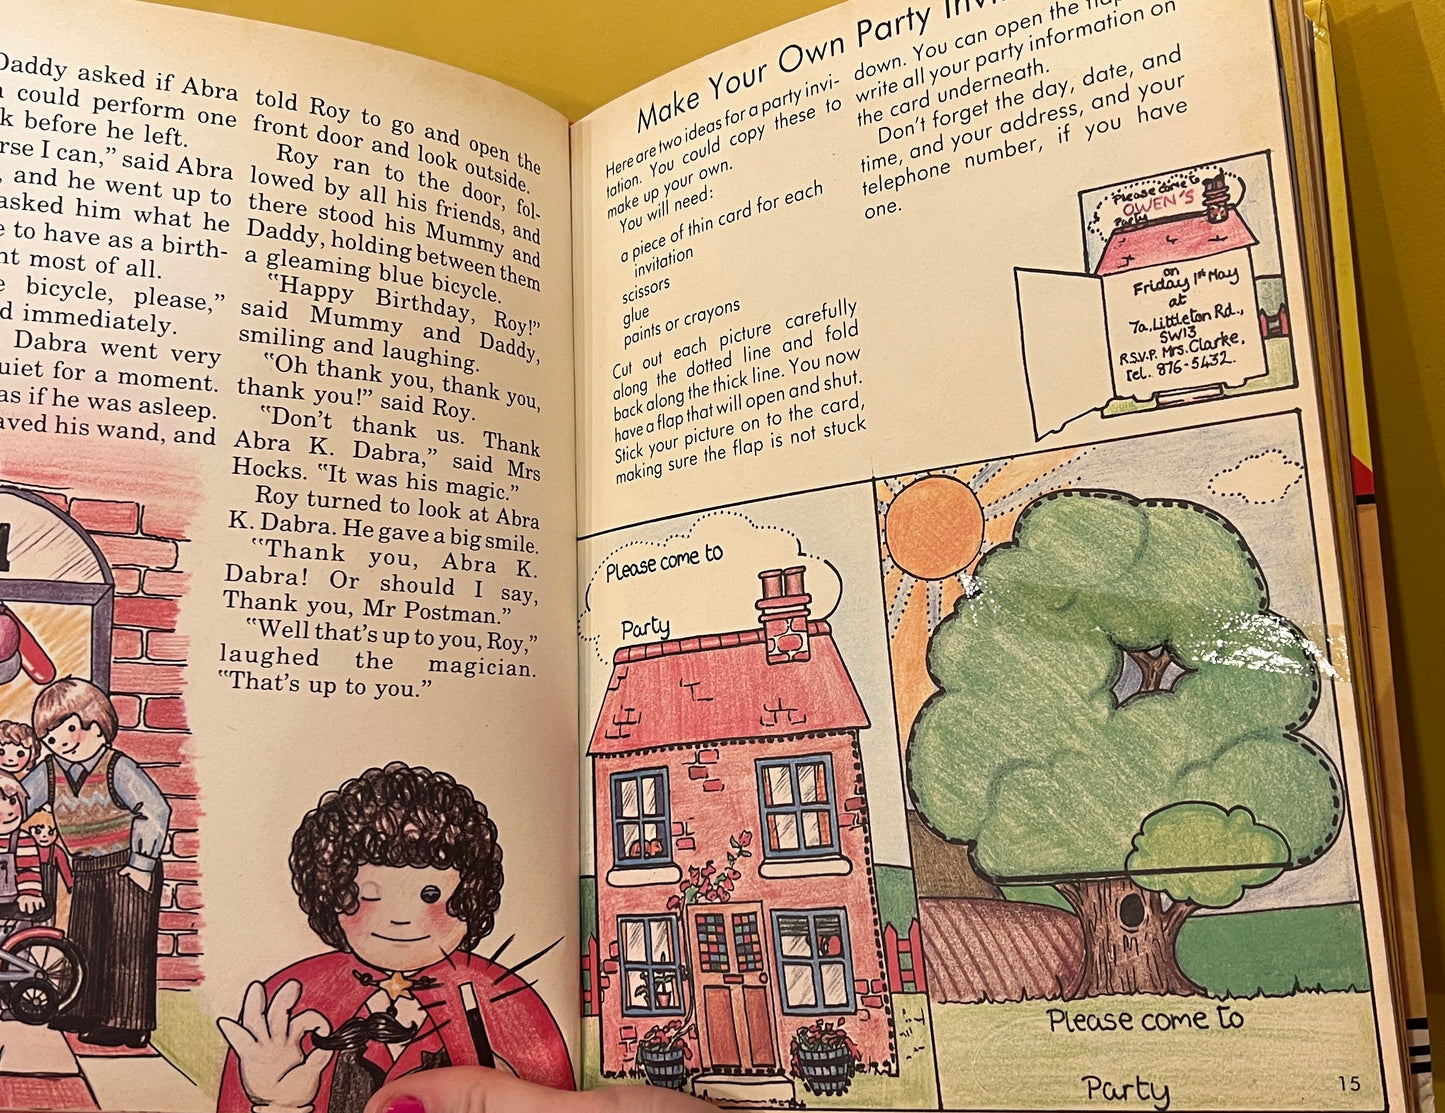 Daddy asked if Abra
could perform one
before he left.
I can,” said Abra
and he went up to
asked him what he
to have as a birth-
most of all.
bicycle, please,”
immediately.
Dabra went very
for a moment.
as if he was asleep.
his wand, and
told Roy to go and open the
front door and look outside.
Roy ran to the door, fol-
lowed by all his friends, and
there stood his Mummy and
Daddy, holding between them
a gleaming blue bicycle.
“Happy Birthday, Roy!”
said Mummy and Daddy,
smiling and laughing.
“Oh thank you, thank you,
thank you!” said Roy.
“Don’t thank us. Thank
Abra K. Dabra,” said Mrs
Hocks. “It was his magic.”
Roy turned to look at Abra
K. Dabra. He gave a big smile.
“Thank you, Abra K.
Dabra! Or should I say,
Thank you, Mr Postman.”
“Well that’s up to you, Roy,”
laughed the magician.
“That’s up to you.”
Make Your Own Party
Here are two ideas for a party invi-
tation. You could copy these to
make up your own.
You will need:
a piece of thin card for each
invitation
scissors
glue
paints or crayons
Cut out each picture carefully
along the dotted line and fold
back along the thick line. You now
have a flap that will open and shut.
Stick your picture on to the card,
making sure the flap is not stuck
down. You can open the
write all your party information on
the card underneath.
Don’t forget the day, date, and
time, and your address, and your
telephone number, if you have
one.
Please come to
OWEN'S
Party
on
Friday 1st May
at
7a, Littleton Rd.,
SW13
R.S.V.P. Mrs. Clarke,
Tel. 876-5432.
Please come to
Party
Please come to
Party
15